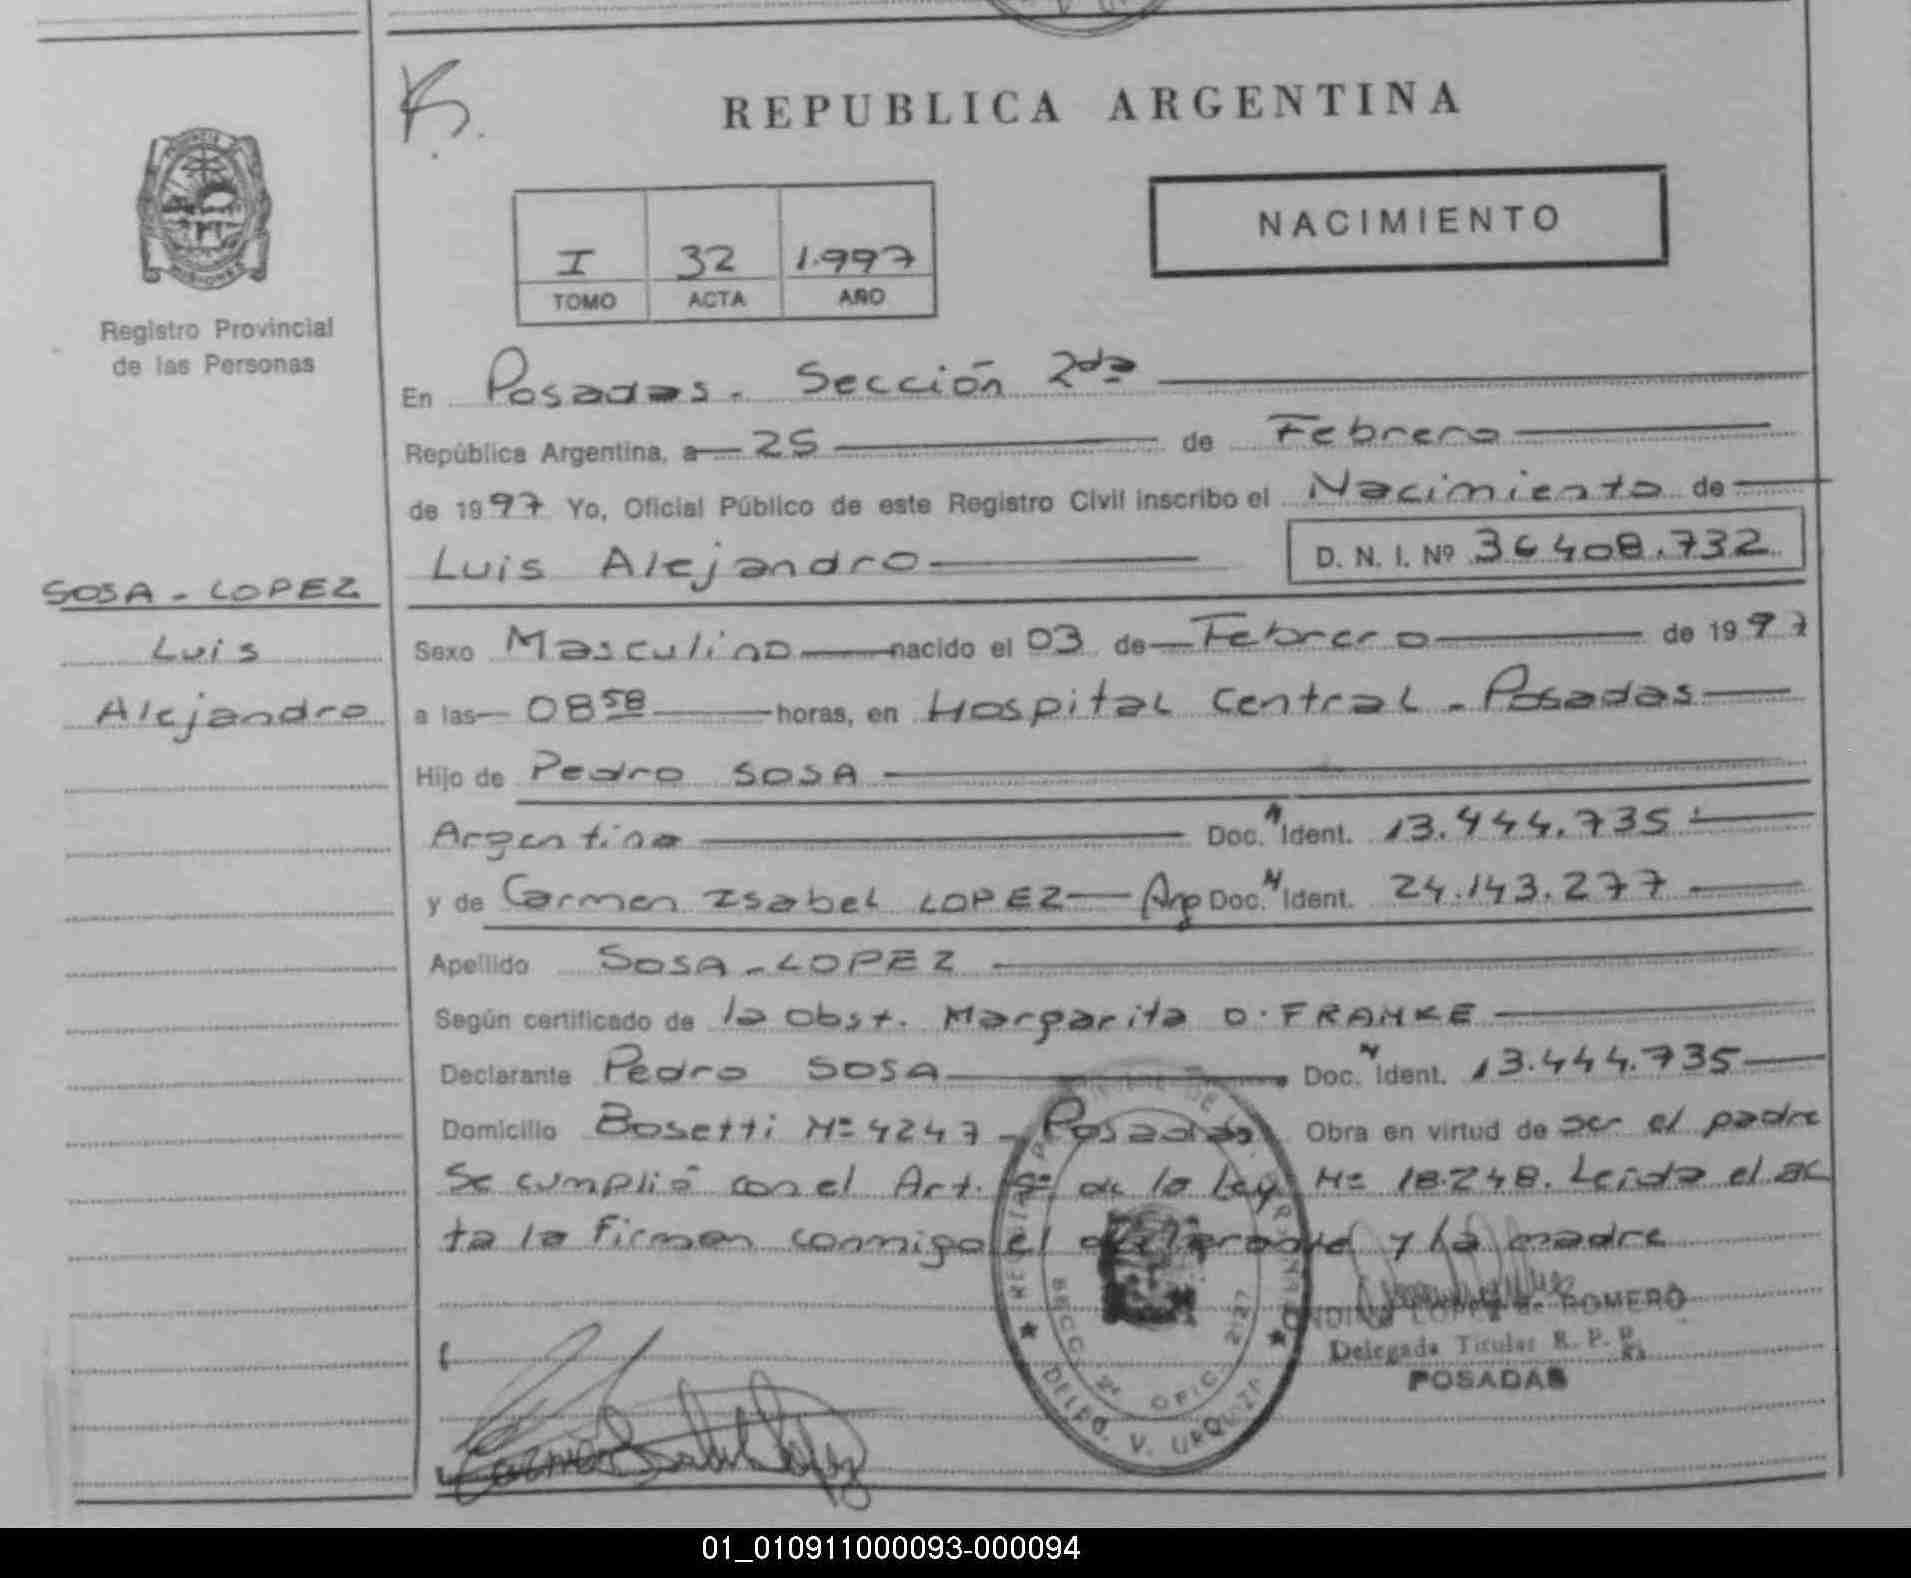 REPUBLICA ARGENTINA
NACIMIENTO
I 32 1.997
TOMO ACTA AÑO
Registro Provincial
de las Personas
En Posadas. Sección 2da
República Argentina, a 25 de Febrero
de 1997 Yo, Oficial Público de este Registro Civil inscribo el Nacimiento de
Luis Alejandro D. N. I. Nº 36408.732
SOSA - LOPEZ
Luis
Alejandro
Sexo Masculino nacido el 03 de Febrero de 1997
a las 08 58 horas, en Hospital Central - Posadas
Hijo de Pedro SOSA
Argentino Doc. N Ident. 13.444.735
y de Carmen Isabel LOPEZ Arg Doc. N Ident. 24.143.277
Apellido SOSA - LOPEZ
Según certificado de la obst. Margarita O. FRANKE
Declarante Pedro SOSA Doc. N Ident. 13.444.735
Domicilio Bosetti Nº 4247 - Posadas Obra en virtud de ser el padre
Se cumplió con el Art. de la Ley Nº 18.248. Leida el ac
ta la firman conmigo el declarante y la madre
LOPEZ de ROMERO
Delegada Titular R. P. P.
POSADAS
Carmen Isabel Lopez
SECC. 2ª OFIC. 2127
DELEG. V. URQUIZA
01_010911000093-000094